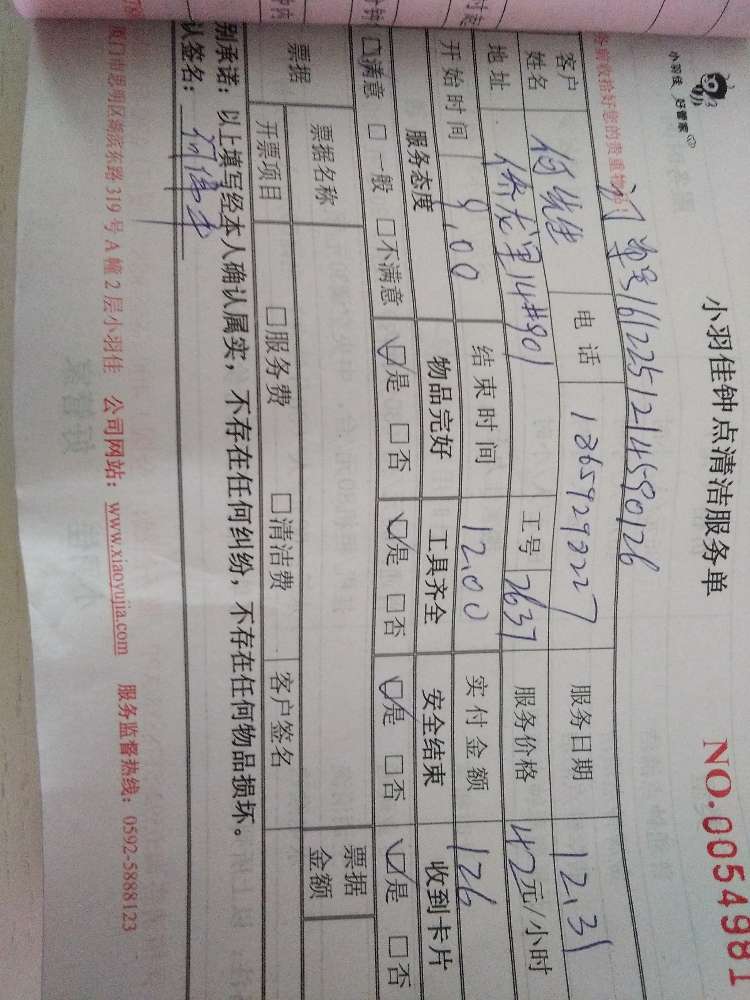 小羽佳 好管家
小羽佳钟点清洁服务单
NO.0054981
务前收拾好您的贵重物品!
订单号161225121458012b
客户姓名 电话 13659292227 服务日期 12.31
地址 侨龙里14#901 工号 2637 服务价格 42元/小时
开始时间 9.00 结束时间 12.00 实付金额 126
服务态度 物品完好 工具齐全 安全结束 收到卡片
□满意 □一般 □不满意 ☑是 □否 ☑是 □否 ☑是 □否 ☑是 □否
票据 票据名称 票据金额
开票项目 □服务费 □清洁费 客户签名
别承诺：以上填写经本人确认属实，不存在任何纠纷，不存在任何物品损坏。
认签名：
厦门市思明区湖滨东路319号A幢2层小羽佳 公司网站：www.xiaoyujia.com 服务监督热线：0592-5888123